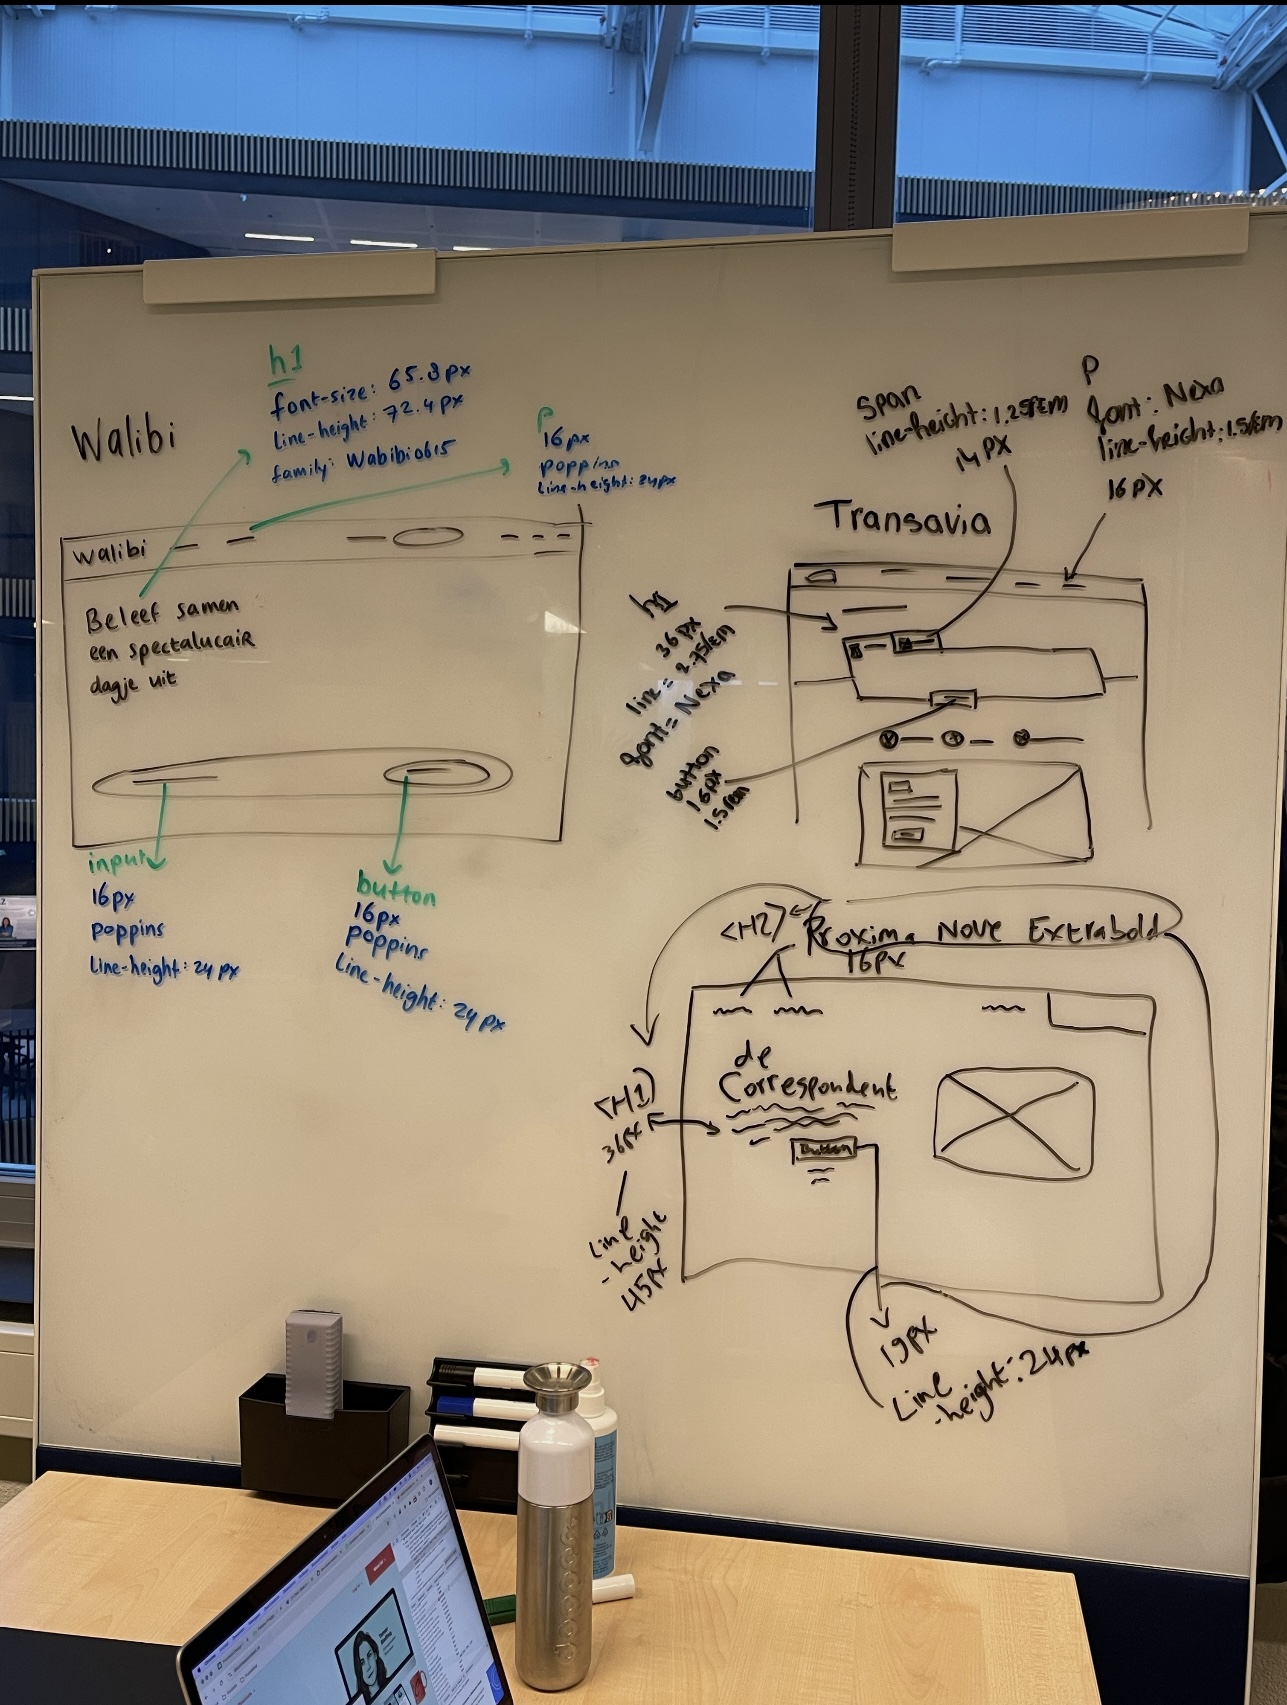 Walibi
h1
font-size: 65.8px
line-height: 72.4px
family: Wabibi0615
P
16px
poppins
Line-height: 24px
walibi
Beleef samen
een spectalucair
dagje uit
input
16px
poppins
Line-height: 24 px
button
16px
poppins
Line-height: 24px
Span
14 PX
P
font: Nexa
16 PX
Transavia
h1
36 PX
font = Nexa
button
16px
1.5rem
<H2>
Proxima Nove Extrabold
16px
de
Correspondent
Button
<H1>
36px
Line
-height
45px
19px
Line
-height: 24px
doppeR